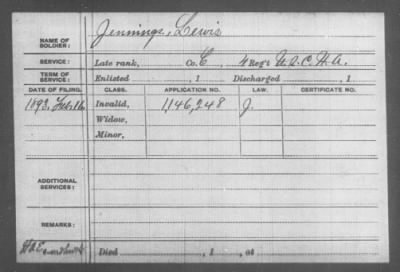 NAME OF SOLDIER: Jennings, Lewis
SERVICE: Late rank, Co. C, 4 Reg't U.S.C.H.A.
TERM OF SERVICE: Enlisted , 1 Discharged , 1
DATE OF FILING. CLASS. APPLICATION NO. LAW. CERTIFICATE NO.
1893, Feb. Invalid, 1,146,248 J.
Widow,
Minor,
ADDITIONAL SERVICES:
REMARKS:
Died , 1 , at